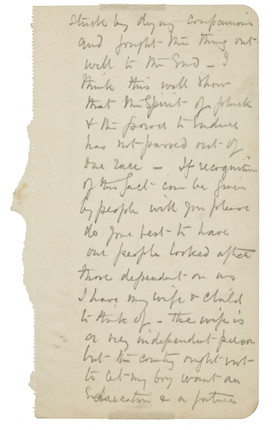 stuck by dying companions
and fought this thing out
well to the End - I
think this will show
that the Spirit of pluck
& the power to endure
has not passed out of
our race - If recognition
of this fact can be given
by people will you please
do your best to have
our people looked after
those dependent on us
I have my wife & child
to think of - the wife is
a very independent person
but the country ought not
to let my boy want an
Education & a future